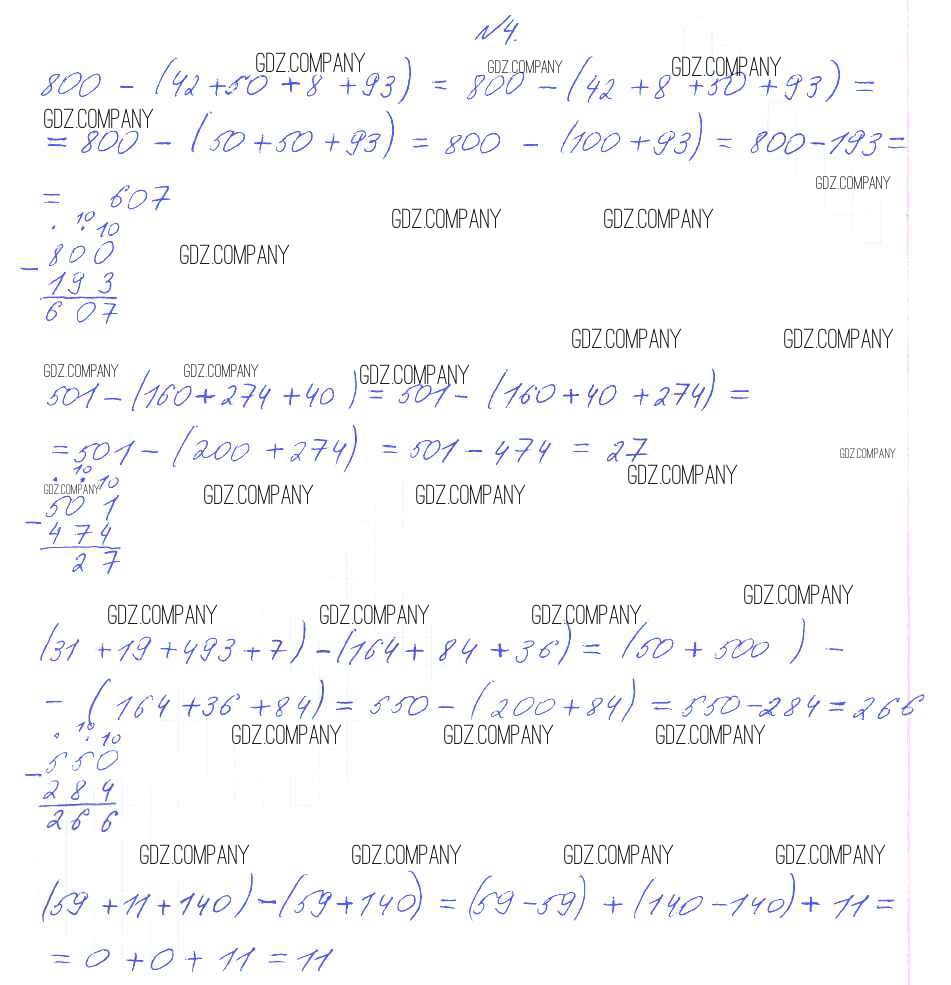 №4.
GDZ.COMPANY GDZ.COMPANY GDZ.COMPANY
800 - (42+50+8+93) = 800 - (42+8+50+93) =
GDZ.COMPANY
= 800 - (50+50+93) = 800 - (100+93) = 800-193=
GDZ.COMPANY
= 607
GDZ.COMPANY GDZ.COMPANY
. 10
. 10
800
GDZ.COMPANY
- 193
607
GDZ.COMPANY GDZ.COMPANY
GDZ.COMPANY GDZ.COMPANY GDZ.COMPANY
501-(160+274+40) = 501- (160+40+274) =
=501-(200+274) = 501-474 = 27
GDZ.COMPANY
GDZ.COMPANY
. 10
. 10
GDZ.COMPANY GDZ.COMPANY GDZ.COMPANY
501
- 474
27
GDZ.COMPANY
GDZ.COMPANY GDZ.COMPANY GDZ.COMPANY
(31+19+493+7)-(164+84+36) = (50+500) -
- (164+36+84) = 550-(200+84) = 550-284=266
. 10
. 10
GDZ.COMPANY GDZ.COMPANY GDZ.COMPANY
550
- 284
266
GDZ.COMPANY GDZ.COMPANY GDZ.COMPANY GDZ.COMPANY
(59+11+140)-(59+140) = (59-59) + (140-140) + 11 =
= 0+0+11 = 11